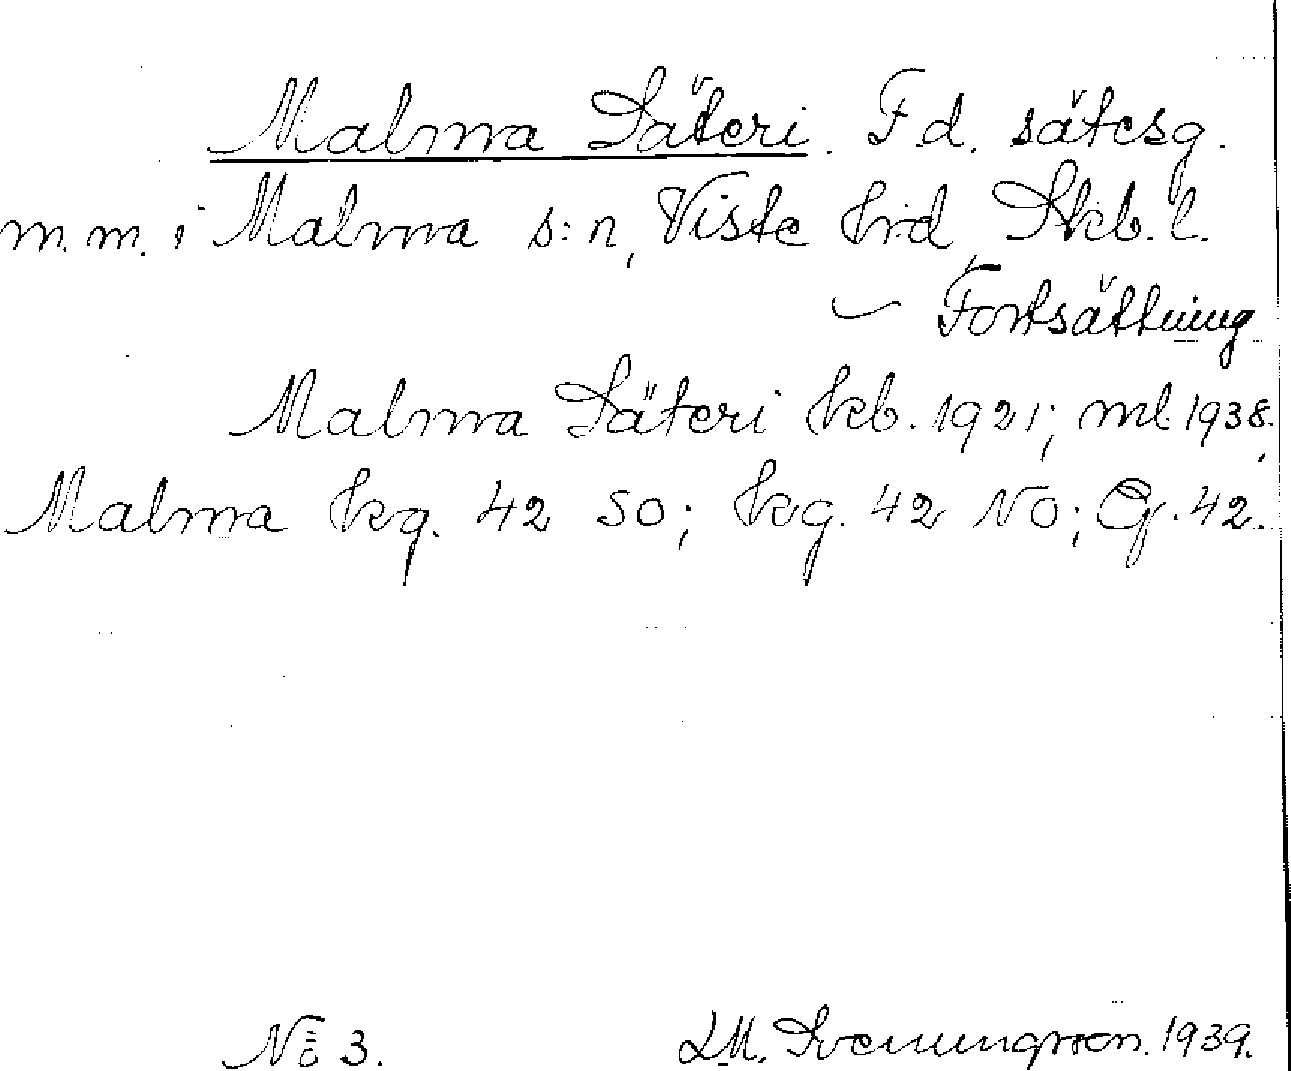 Malma Säteri. F d. sätesg.
m. m. i Malma s:n, Viste hrd Skb. l.
— Fortsättning
Malma Säteri kb. 1921; ml 1938.,
Malma kg. 42 SO; kg. 42 NO; Gg. 42.
No 3.
LM. Svenungsson. 1939.